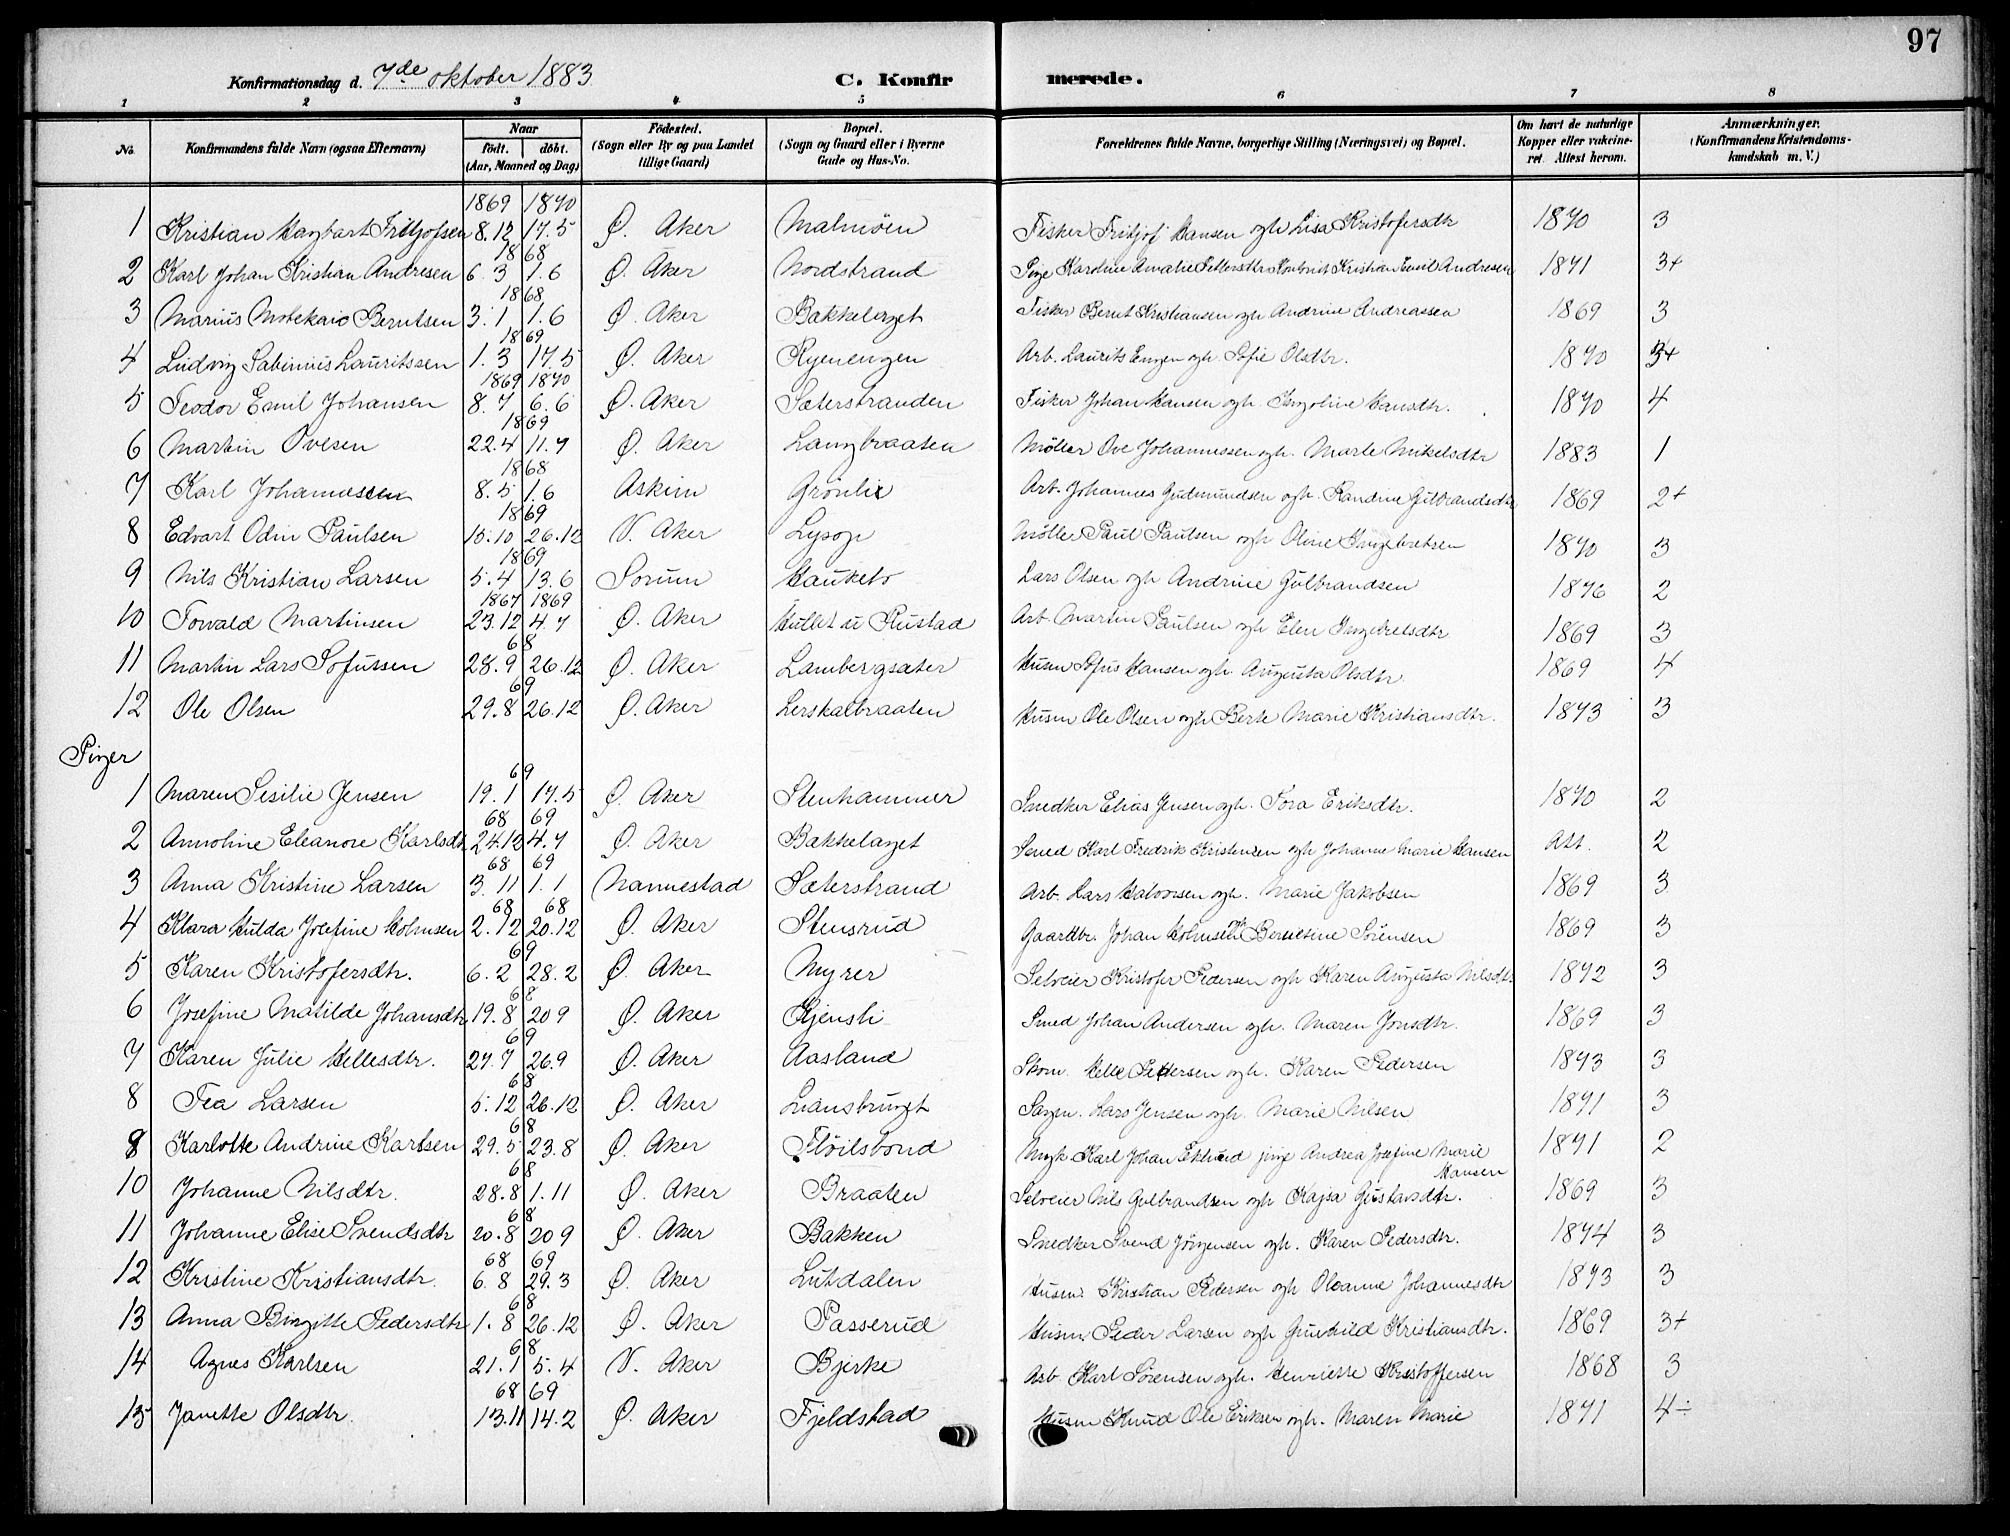 97
Konfirmationsdag d. 7de oktober 1883 C. Konfirmerede.
1 2 3 4 5 6 7 8
No. Konfirmandens fulde Navn (ogsaa Efternavn) Naar født. døbt. (Aar, Maaned og Dag) Födested. (Sogn eller By og paa Landet tillige Gaard) Bopæl. (Sogn og Gaard eller i Byerne Gade og Hus-No. Forældrenes fulde Navne, borgerlige Stilling (Næringsvei) og Bopæl. Om havt de naturlige Kopper eller vakcineret. Attest herom. Anmærkninger. (Konfirmandens Kristendomskundskab m. V.)
1869 1870
1 Kristian Hagbart Fritjofsen 8.12 17.5 Ø. Aker Malmöen Fisker Fritjof Hansen ogh Lisa Kristofersdtr 1870 3
1868
2 Karl Johan Kristian Andresen 6.3 1.6 Ø. Aker Nordstrand Pige Karoline Amalie Pettersdtr Kristian Emil Andresen 1871 3+
1868
3 Marius Berntsen 3.1 1.6 Ø. Aker Bakkelaget Fisker Bernt Kristiansen ogh Andrine Andreassen 1869 3
1869
4 Ludvig Sabinius Lauritssen 1.3 17.5 Ø. Aker Ryenengen Arb. Laurits Engen ogh. Sofie Olsdtr. 1870 3+
1869 1870
5 Teodor Emil Johansen 8.7 6.6 Ø. Aker Sæterstranden Fisker Johan Hansen ogh. Ingoline Hansdtr. 1870 4
1869
6 Martin Ovesen 22.4 11.7 Ø. Aker Langbraaten Møller Ove Johannessen ogh. Marte Mikelsdtr 1883 1
1868
7 Karl Johannessen 8.5 1.6 Askim Grönlie Arb. Johannes Gudmundsen ogh. Randine Gulbrandsdtr 1869 2+
1869
8 Edvart Odin Paulsen 15.10 26.12 V. Aker Lysop Møller Paul Paulsen ogh Oline Ingebretsen 1870 3
1869
9 Nils Kristian Larsen 5.4 13.6 Sorum Hauketo Lars Olsen ogh Andrine Gulbrandsen 1876 2
1867 1869
10 Torvald Martinsen 23.12 4.7 Ø. Aker Hullet u Rustad Arb. Martin Paulsen ogh Elen Ingebretsdtr 1869 3
68
11 Martin Lars Sofussen 28.9 26.12 Ø. Aker Lambergsæter Husm Sofus Hansen ogh. Augusta Olsdtr. 1869 4
69
12 Ole Olsen 29.8 26.12 Ø. Aker Lerskalbraaten Husm Ole Olsen ogh Berte Marie Kristiansdtr. 1873 3
Piger
69
1 Maren Sesilie Jensen 19.1 17.5 Ø. Aker Stenhammer Snedker Elias Jensen ogh. Tora Eriksdtr. 1870 2
68 69
2 Annoline Eleanore Karlsdtr 24.12 4.7 Ø. Aker Bakkelaget Smed Karl Fredrik Kristensen ogh Johanne Marie Hansen Att. 2
68 69
3 Anna Kristine Larsen 3.11 1.1 Nannestad Sæterstrand Arb. Lars Halvorsen ogh. Marie Jakobsen 1869 3
68 68
4 Klara Hulda Josefine Holmsen 2.12 20.12 Ø. Aker Stensrud Gaardbr. Johan Holmsen ogh Bernetine Sörensen 1869 3
69
5 Karen Kristofersdtr. 6.2 28.2 Ø. Aker Myrer Selveier Kristofer Pedersen ogh Karen Augusta Nilsdtr 1872 3
68
6 Josefine Matilde Johansdtr 19.8 20 9 Ø. Aker Gjensli Smed Johan Andersen ogh. Maren Jonsdtr. 1869 3
69
7 Karen Julie Hellesdtr. 27.7 26.9 Ø. Aker Aasland Skom. Helle Pettersen ogh. Karen Pedersen 1873 3
68
8 Tea Larsen 5.12 26.12 Ø. Aker Liansbruget Sagm. Lars Jensen ogh. Marie Nilsen 1871 3
68
9 Karlotte Andrine Karlsen 29.5 23.8 Ø. Aker Flöilsbond Ungk. Karl Johan Eklund pige Andrea Josefine Marie Hansen 1871 2
68
10 Johanne Nilsdtr. 28.8 1.11 Ø. Aker Braaten Selveier Nils Gulbrandsen ogh Kajsa Gustavsdtr. 1869 3
68
11 Johanne Elise Svendsdtr 20.8 20 9 Ø. Aker Bakken Snedker Svend Jörgensen ogh. Karen Pedersdtr. 1874 3
68 69
12 Kristine Kristiansdtr. 6.8 29.3 Ø. Aker Lutdalen Husm. Kristian Pedersen ogh Oleanne Johannesdtr 1873 3
68
13 Anna Birgitte Pedersdtr 1.8 26.12 Ø. Aker Passerud Husm. Peder Larsen ogh Gunhild Kristiansdtr. 1869 3+
68
14 Agnes Karlsen 21.1 5.4 V. Aker Bjerke Arb. Karl Sörensen ogh. Henriette Kristoffersen 1868 3
68 69
15 Janette Olsdtr. 13.11 14.2 Ø. Aker Fjeldstad Husm Knud Ole Eriksen ogh. Maren Marie 1871 4÷